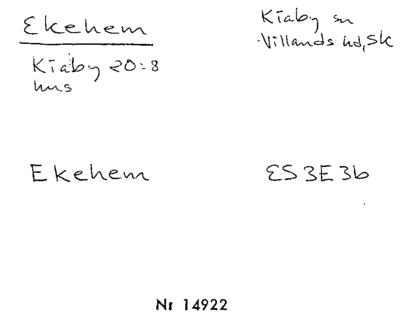 Ekehem
Kiaby sn
Villands hd, Sk
Kiaby 20:8
hus
Ekehem
ES 3E 3b
Nr 14922